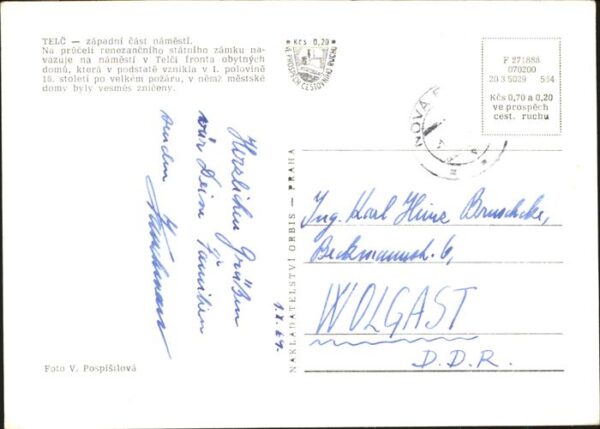 TELČ — západní část náměstí.
Na průčelí renezančního státního zámku na-
vazuje na náměstí v Telči fronta obytných
domů, která v podstatě vznikla v 1. polovině
16. století po velkém požáru, v němž městské
domy byly vesměs zničeny.
Kčs 0,20
V PROSPĚCH CESTOVNÍHO RUCHU
F 271888
070200
20 3 5029 564
Kčs 0,70 a 0,20
ve prospěch
cest. ruchu
NOVÁ
Herzlichen Grüßen
Dein Familien
senden
1.X.69.
NAKLADATELSTVÍ ORBIS — PRAHA
Ing. Karl Heinz Bruschcke,
Beckmannstr. 6,
WOLGAST
D.D.R.
Foto V. Pospíšilová